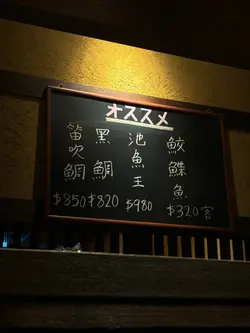 オススメ
笛吹鯛
$850
黑鯛
$820
池魚王
$980
鮫鰈魚
$320客